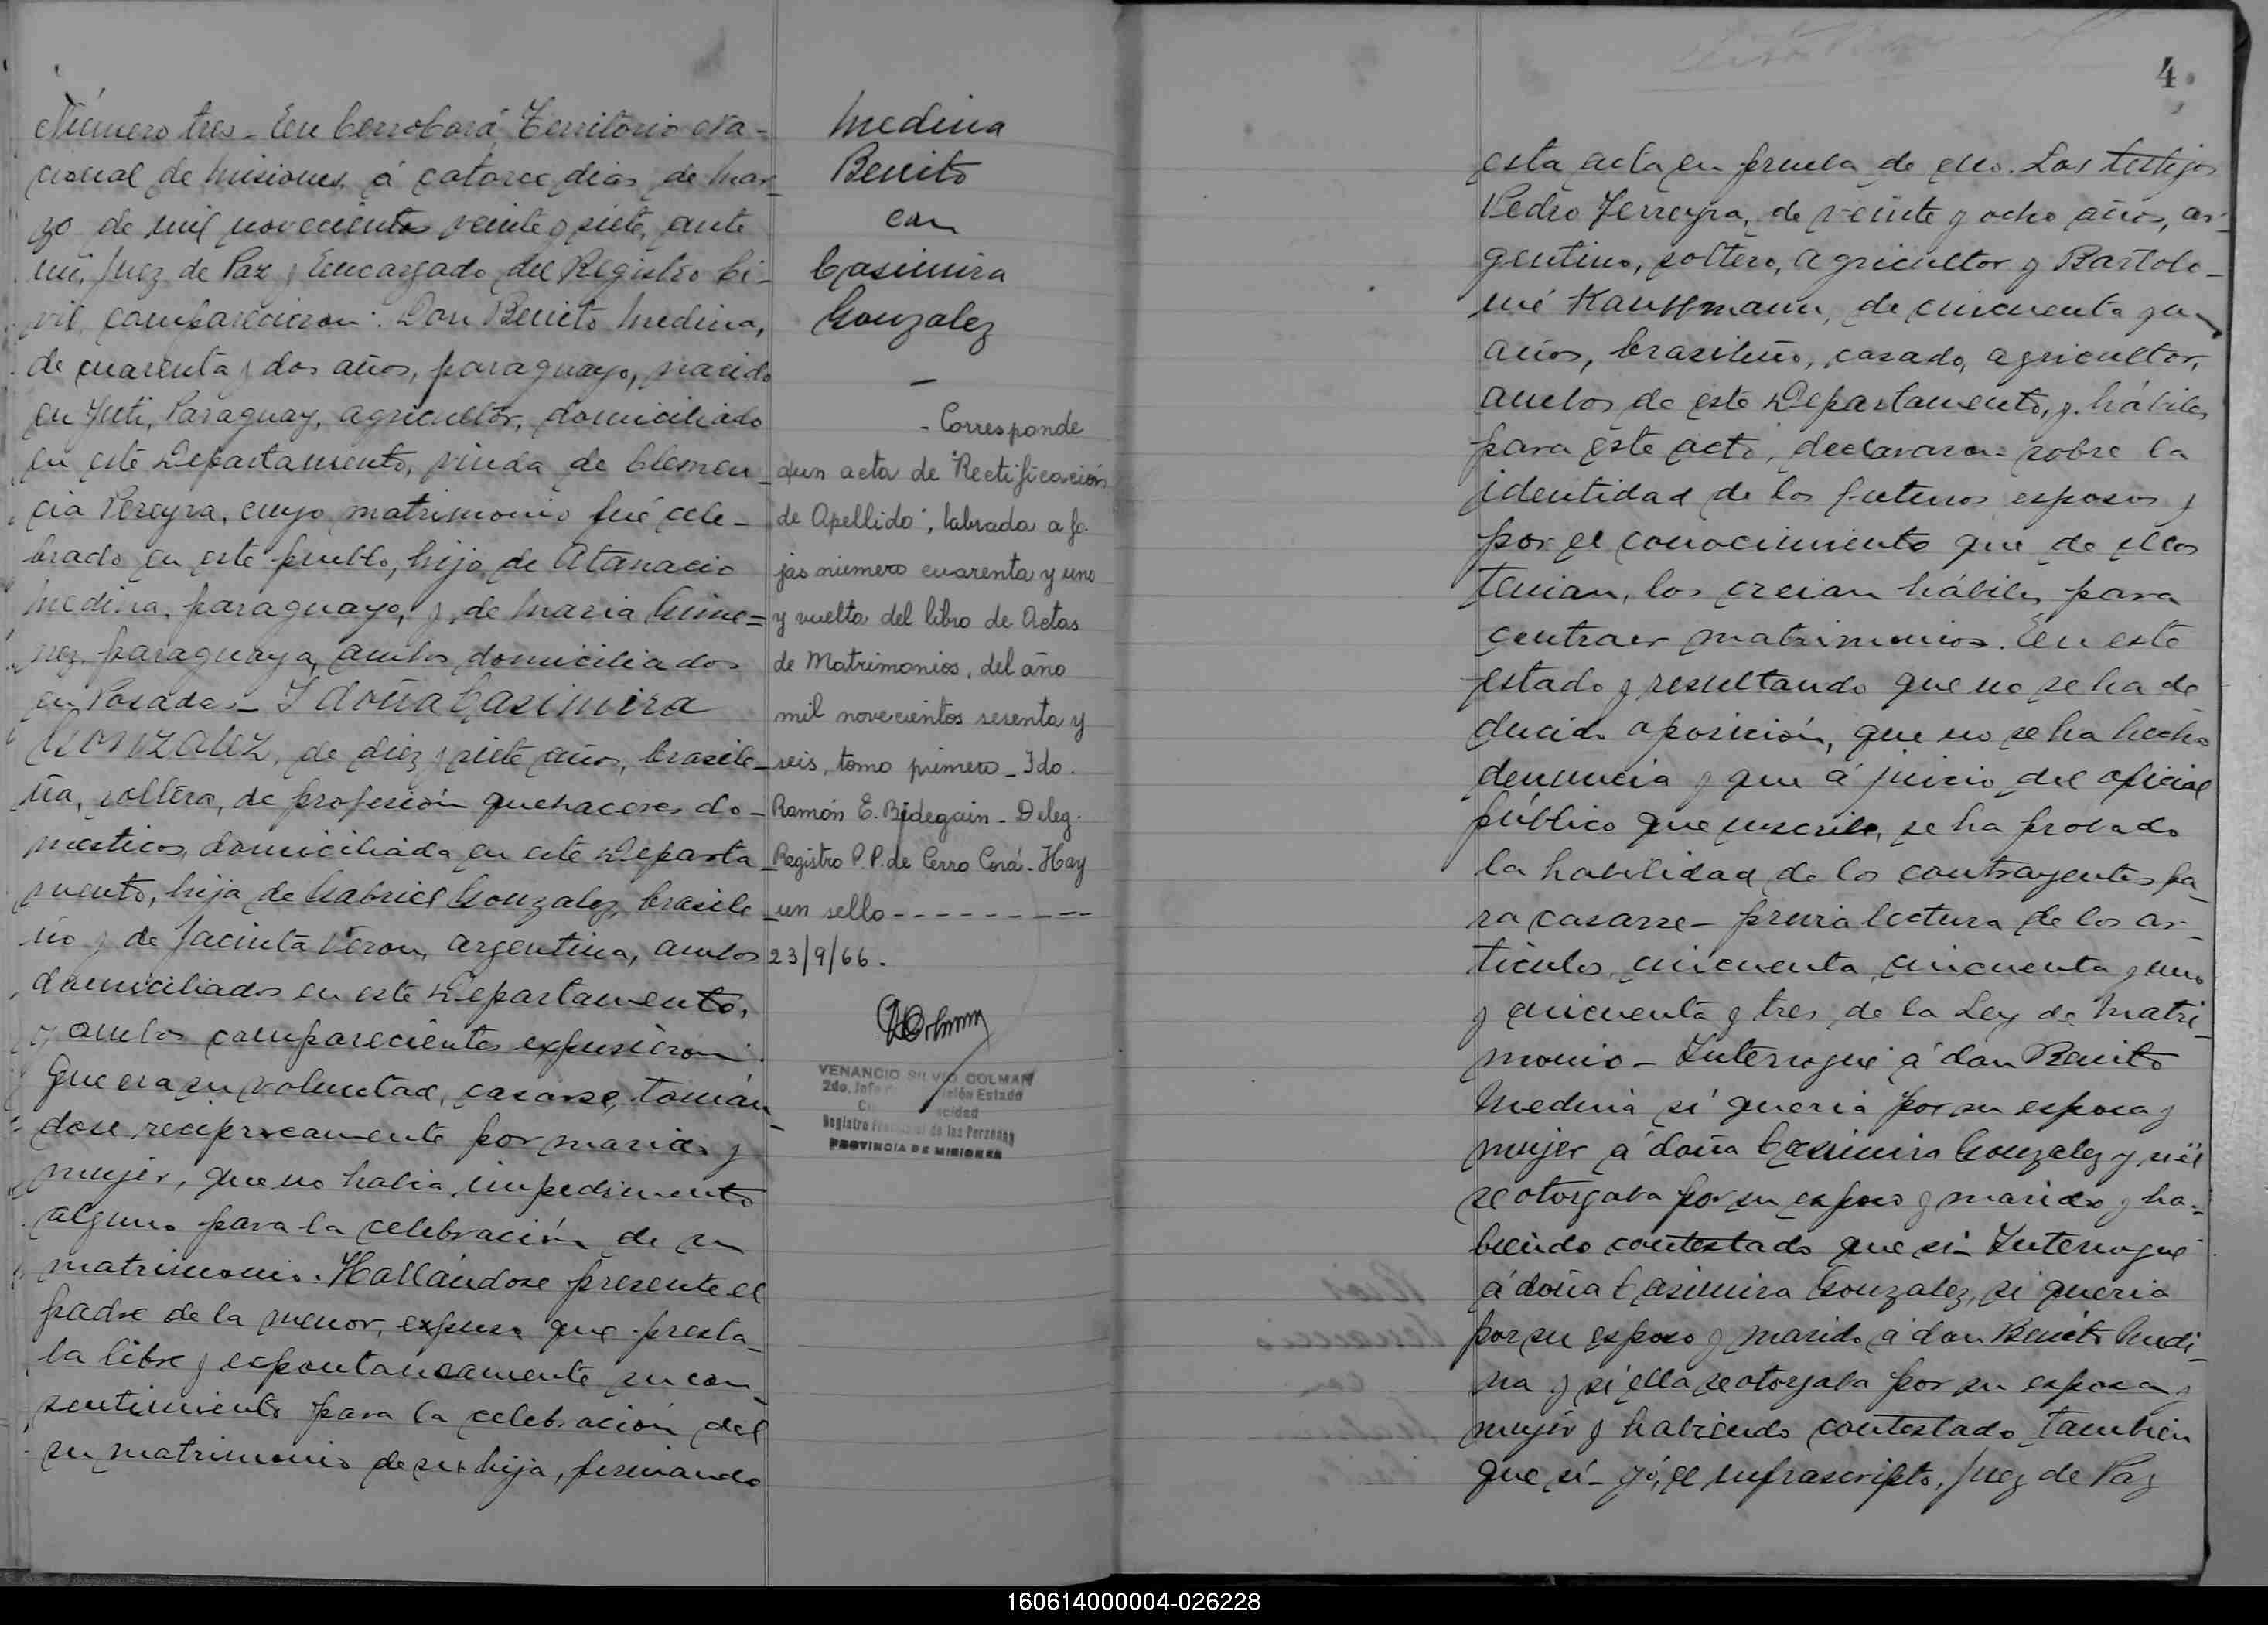 Número tres - En Cerro Corá, Territorio Na-
cional de Misiones, á catorce dias de Mar-
zo de mil novecientos veinte y siete, ante
mi, Juez de Paz y Encargado del Registro Ci-
vil, comparecieron: Don Benito Medina,
de cuarenta y dos años, paraguayo, nacido
en Yuti, Paraguay, agricultor, domiciliado
en este Departamento, viudo de Clemen-
cia Pereyra, cuyo matrimonio fué cele-
brado en este pueblo, hijo de Atanacio
Medina, paraguayo, y de Maria Gime=
nez, paraguaya, ambos domiciliados
en Posadas - Y doña Casimira
Gonzalez, de diez y siete años, brasile-
ña, soltera, de profesión quehaceres do-
mesticos, domiciliada en este Departa-
mento, hija de Gabriel Gonzalez, brasile-
ño y de Jacinta Veron, argentina, ambos
domiciliados en este Departamento,
y ambos comparecientes expusieron:
Que era su voluntad, casarse, tomán-
dose reciprocamente por marido y
mujer, que no habia impedimento
alguno para la celebración de su
matrimonio. Hallándose presente el
padre de la menor, expuso que presta-
ba libre y espontaneamente su con-
sentimiento para la celebración del
su matrimonio de su hija, firmando
Medina
Benito
con
Casimira
Gonzalez
-
- Corresponde
a un acta de "Rectificación
de Apellido", labrada a fo-
jas número cuarenta y uno
y vuelta del libro de Actas
de Matrimonios, del año
mil novecientos sesenta y
seis, tomo primero - Fdo.
Ramón E. Bidegain - Deleg.
Registro P. P. de Cerro Corá - Hay
un sello - - - - - - - - -
23/9/66.
VENANCIO SILVIO COLMAN
2do. Jefe Estado
Registro de las Personas
PROVINCIA DE MISIONES
4
esta acta en prueba de ello. Los testigos
Pedro Ferreyra, de veinte y ocho años, ar-
gentino, soltero, agricultor y Bartolo-
mé Kauffmann, de cincuenta y un
años, brasileño, casado, agricultor,
ambos de este Departamento, y hábiles
para este acto, declararon sobre la
identidad de los futuros esposos y
por el conocimiento que de ellos
tenian, los creian hábiles para
contraer matrimonios. En este
estado y resultando que no se ha de
ducido oposición, que no se ha hecho
denuncia y que á juicio del oficial
público que suscribe, se ha probado
la habilidad de los contrayentes pa-
ra casarse - previa lectura de los ar-
ticulos, cincuenta, cincuenta y uno
y cincuenta y tres de la Ley de Matri-
monio - Interrogué á don Benito
Medina si queria por su esposa y
mujer á doña Casimira Gonzalez y si él
se otorgaba por su esposo y marido y ha-
biendo contestado que si - Interrogué
á doña Casimira Gonzalez, si queria
por su esposo y marido á don Benito Medi-
na y si ella se otorgaba por su esposa y
mujer y habiendo contestado tambien
que sí - Yó, el infrascripto, Juez de Paz
160614000004-026228